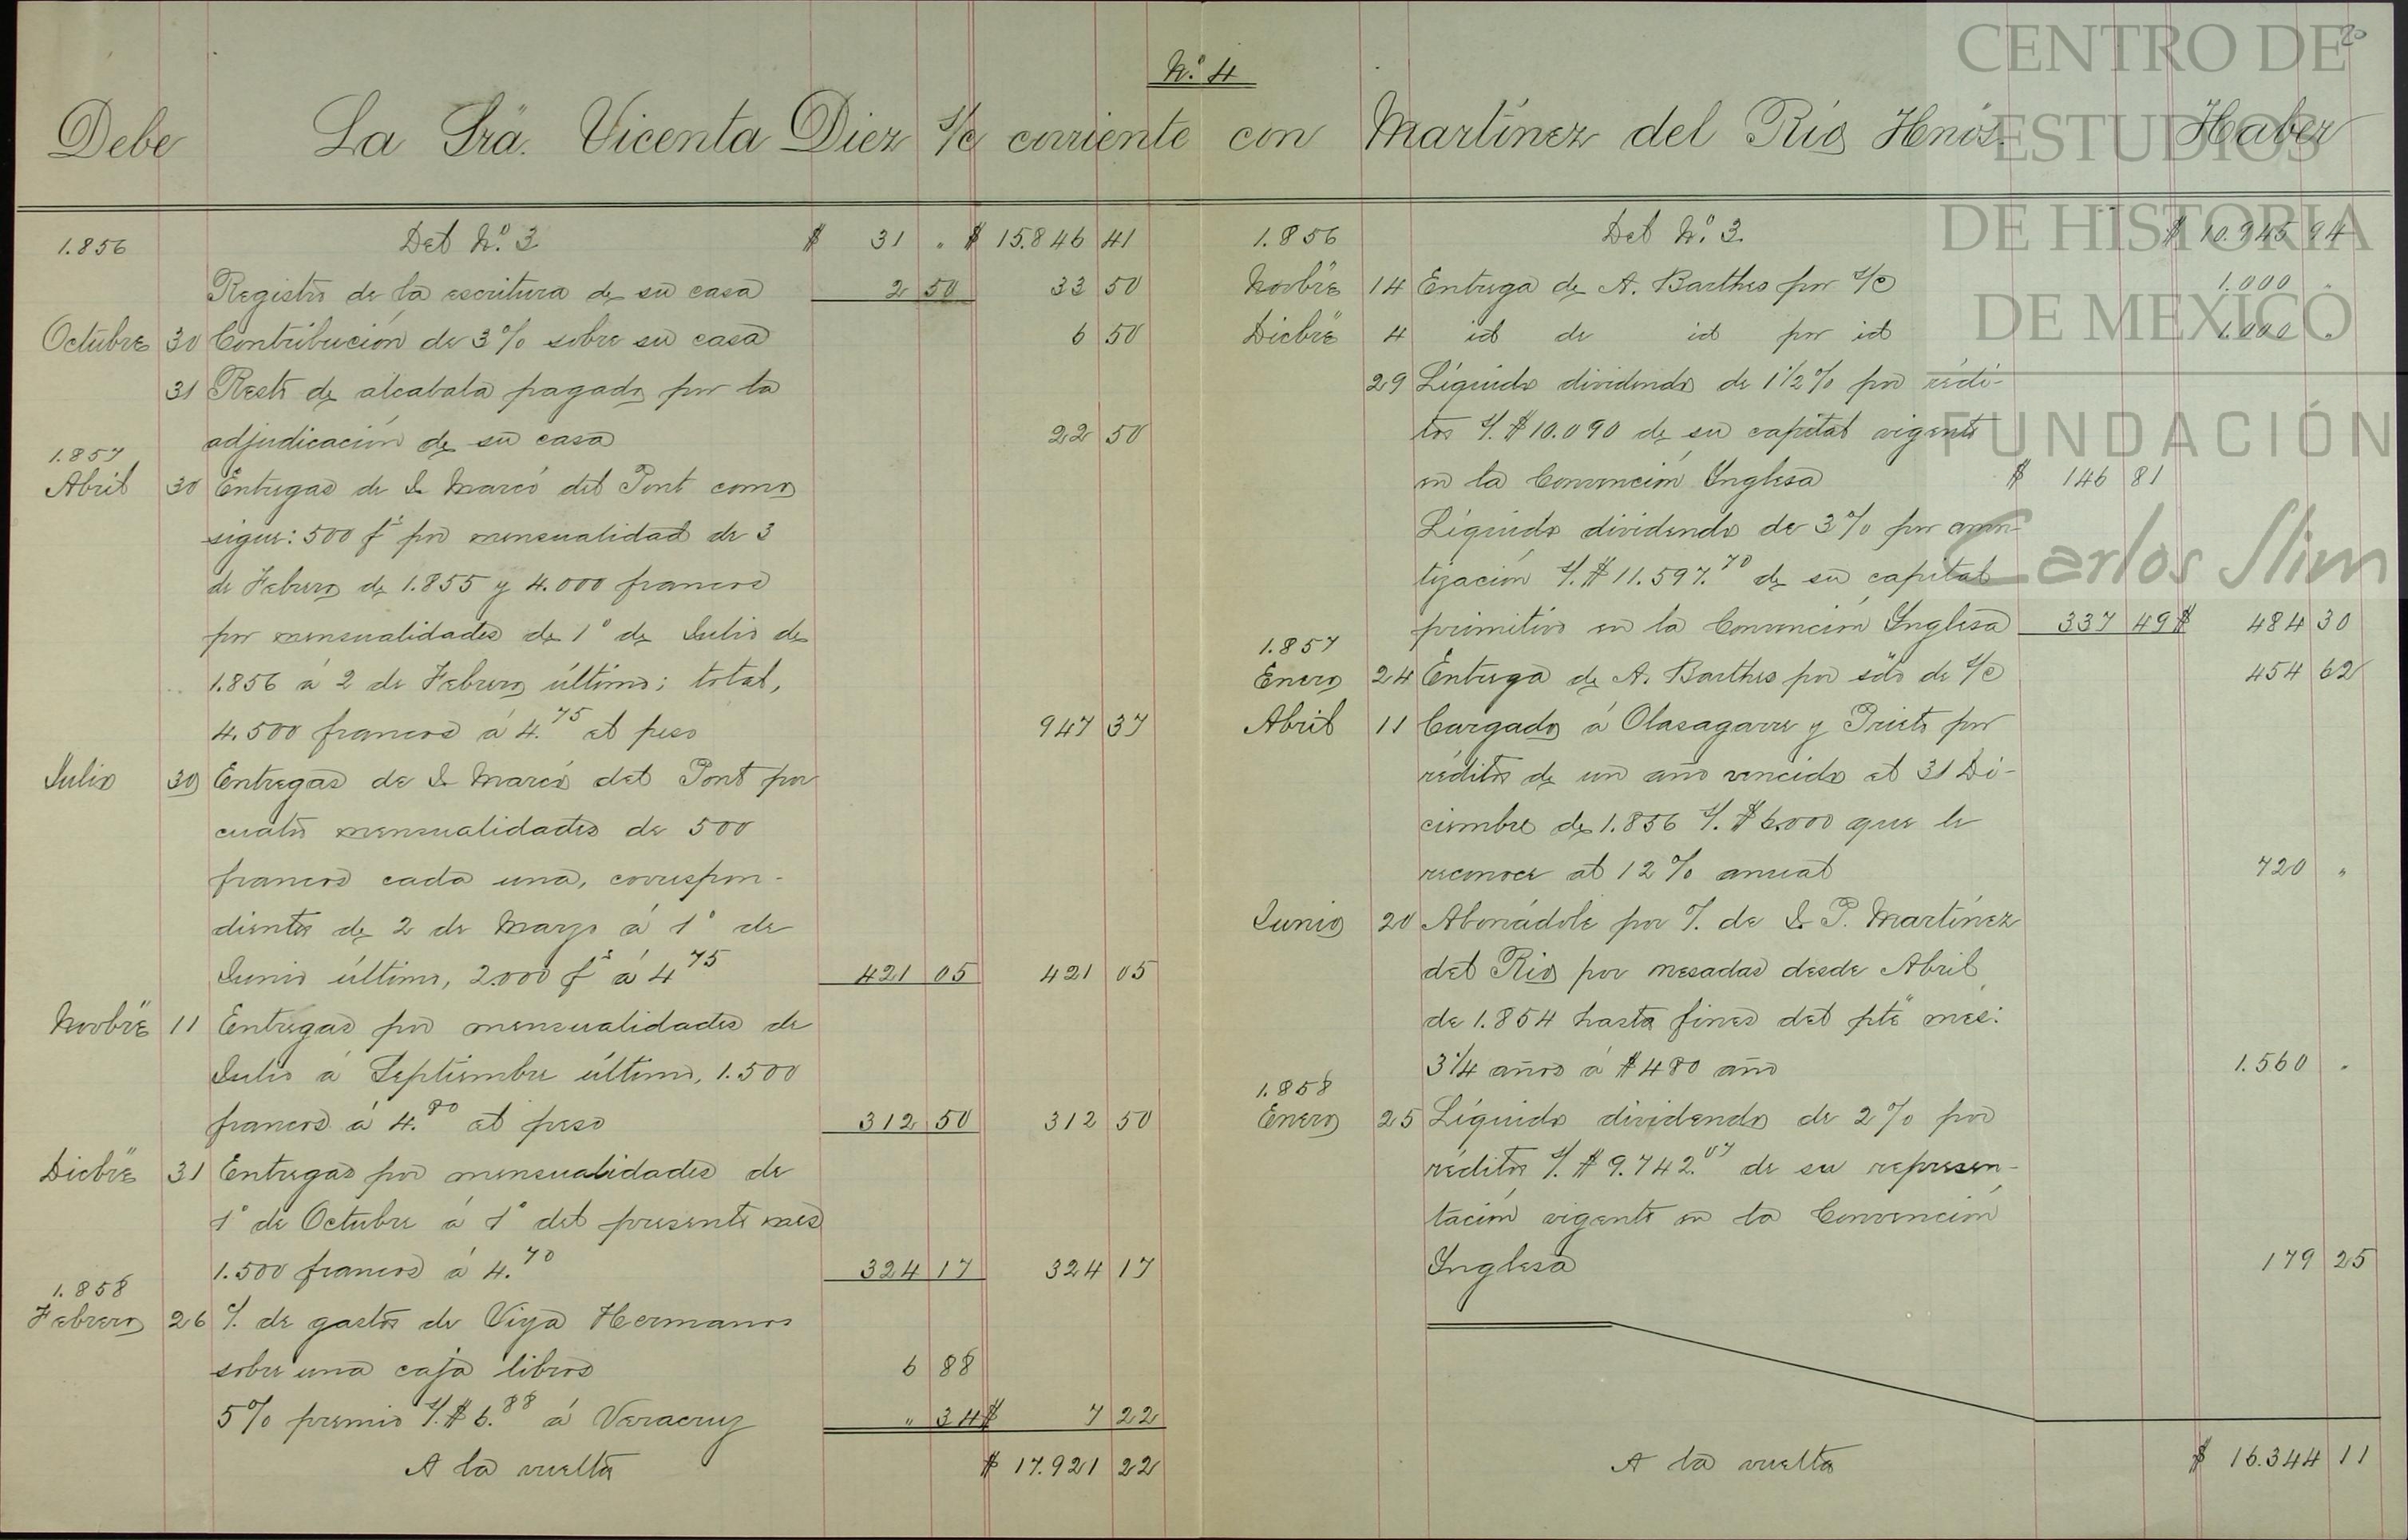 20
CENTRO DE
ESTUDIOS
DE HISTORIA
DE MEXICO
FUNDACIÓN
Carlos Slim
N.º 4
Debe La Srã. Vicenta Diez s/c corriente con Martínez del Río Hnós. Haber
1.856 Del N.º 3 $ 31 „ $ 15.846 41
Registro de la escritura de su casa 2 50 33 50
Octubre 30 Contribución de 3% sobre su casa 6 50
31 Resto de alcabala pagado por la
adjudicación de su casa 22 50
1.857
Abril 30 Entregas de J. Marcó del Pont como
sigue: 500 f.s por mensualidad de 3
de Febrero de 1.855 y 4.000 francos
por mensualidades de 1º de Julio de
1.856 á 2 de Febrero último; total,
4.500 francos á 4.75 al peso 947 37
Julio 30 Entregas de J. Marcó del Pont por
cuatro mensualidades de 500
francos cada una, correspon-
dientes de 2 de Marzo á 1º de
Junio último, 2.000 f.s á 4 75 421 05 421 05
Novbrë 11 Entregas por mensualidades de
Julio á Septiembre último, 1.500
francos á 4.80 al peso 312 50 312 50
Dicbrë 31 Entregas por mensualidades de
1º de Octubre á 1º del presente mes
1.500 francos á 4.70 324 17 324 17
1.858
Febrero 26 %. de gastos de Viya Hermanos
sobre una caja libros 6 88
5% premio s/. $ 6.88 á Veracruz „ 34 $ 7 22
A la vuelta $ 17.921 22
1.856 Del N.º 3. $ 10.945 94
Novbrë 14 Entrega de A. Barthes por s/c 1.000 „
Dicbrë 4 id de id por id 1.000 „
29 Líquido dividendo de 1 1/2% por rédi-
tos s/. $ 10.090 de su capital vigente
en la Convención Inglesa $ 146 81
Líquido dividendo de 3% por amor-
tización s/. $ 11.597.70 de su capital
primitivo en la Convención Inglesa 337 49 $ 484 30
1.857
Enero 24 Entrega de A. Barthes por sdo de s/c 454 62
Abril 11 Cargado á Olasagarre y Prieto por
réditos de un año vencido el 31 Di-
ciembre de 1.856 s/. $ 6.000 que le
reconoce al 12% anual 720 „
Junio 20 Abonádole por %. de J. P. Martínez
del Río por mesadas desde Abril
de 1.854 hasta fines del ptë mes:
3 1/4 años á $ 480 año 1.560 „
1.858
Enero 25 Líquido dividendo de 2% por
réditos s/. $ 9.742.07 de su represen-
tación vigente en la Convención
Inglesa 179 25
A la vuelta $ 16.344 11